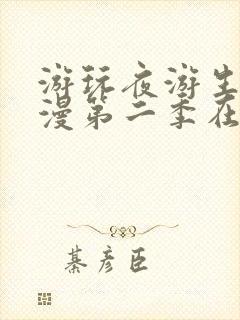 游玩夜游生
漫第二季在
綦彦臣